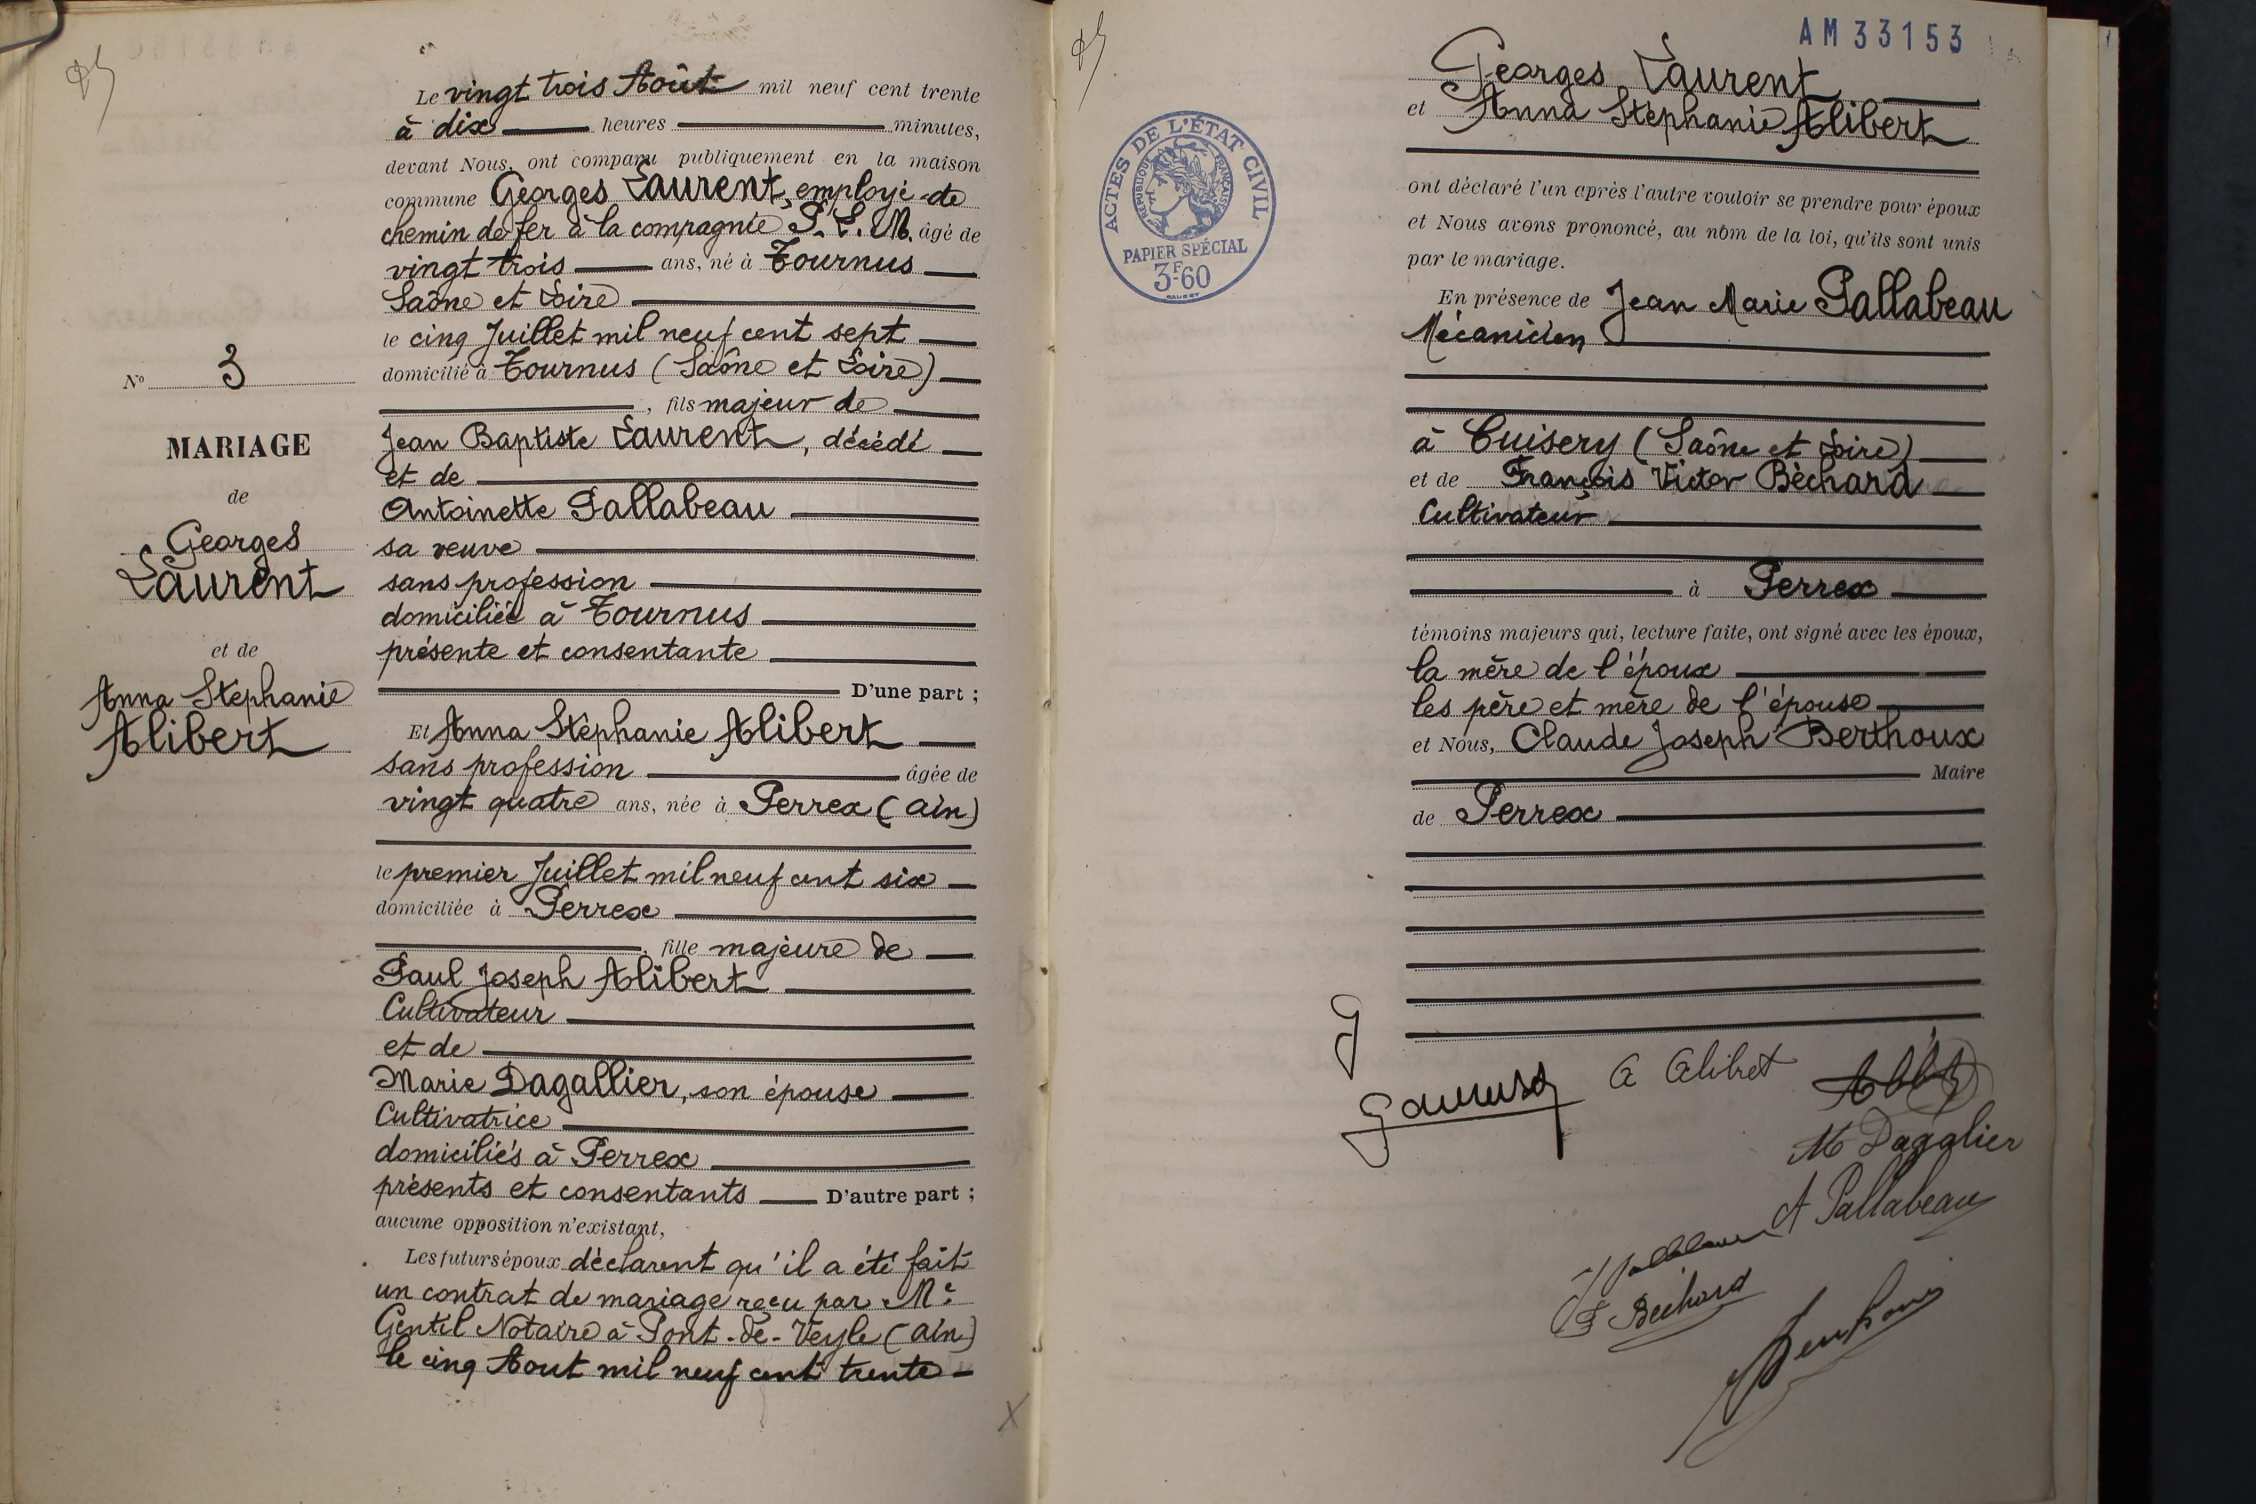 Le vingt trois Août mil neuf cent trente
à dix heures minutes,
devant Nous, ont comparu publiquement en la maison
commune Georges Laurent, employé de
chemin de fer à la compagnie P.L.M. âgé de
vingt trois ans, né à Tournus
Saône et Loire
le cinq Juillet mil neuf cent sept
domicilié à Tournus (Saône et Loire)
, fils majeur de
Jean Baptiste Laurent, décédé
et de
Antoinette Pallabeau
sa veuve
sans profession
domiciliée à Tournus
présente et consentante
D'une part ;
Et Anna Stéphanie Alibert
sans profession âgée de
vingt quatre ans, née à Perrex (Ain)
le premier Juillet mil neuf cent six
domiciliée à Perrex
, fille majeure de
Paul Joseph Alibert
Cultivateur
et de
Marie Dagallier, son épouse
Cultivatrice
domiciliés à Perrex
présents et consentants D'autre part ;
aucune opposition n'existant,
Les futurs époux déclarent qu'il a été fait
un contrat de mariage reçu par Me
Gentil Notaire à Pont-de-Veyle (Ain)
le cinq Aout mil neuf cent trente
No 3
MARIAGE
de
Georges
Laurent
et de
Anna Stéphanie
Alibert
AM33153
ACTES DE L'ÉTAT CIVIL
RÉPUBLIQUE FRANÇAISE
PAPIER SPÉCIAL
3F60
Georges Laurent
et Anna Stéphanie Alibert
ont déclaré l'un après l'autre vouloir se prendre pour époux
et Nous avons prononcé, au nom de la loi, qu'ils sont unis
par le mariage.
En présence de Jean Marie Pallabeau
Mécanicien
à Cuisery (Saône et Loire)
et de François Victor Béchard
Cultivateur
à Perrex
témoins majeurs qui, lecture faite, ont signé avec les époux,
la mère de l'époux
les père et mère de l'épouse
et Nous, Claude Joseph Berthoux
Maire
de Perrex
A Alibert
M Dagalier
A Pallabeau
F Bechard